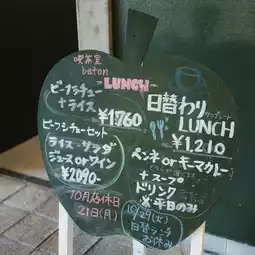 喫茶室
baton
LUNCH
ビーフシチュー
+ライス
¥1760
ビーフシチューセット
ライス・サラダ
ジュース or ワイン
¥2090-
10月店休日
21日(月)
日替わり
ワンプレート
LUNCH
¥1,210
ペンネ or キーマカレー
+スープ
ドリンク
※平日のみ
10/29(火)
日替ランチ
お休み